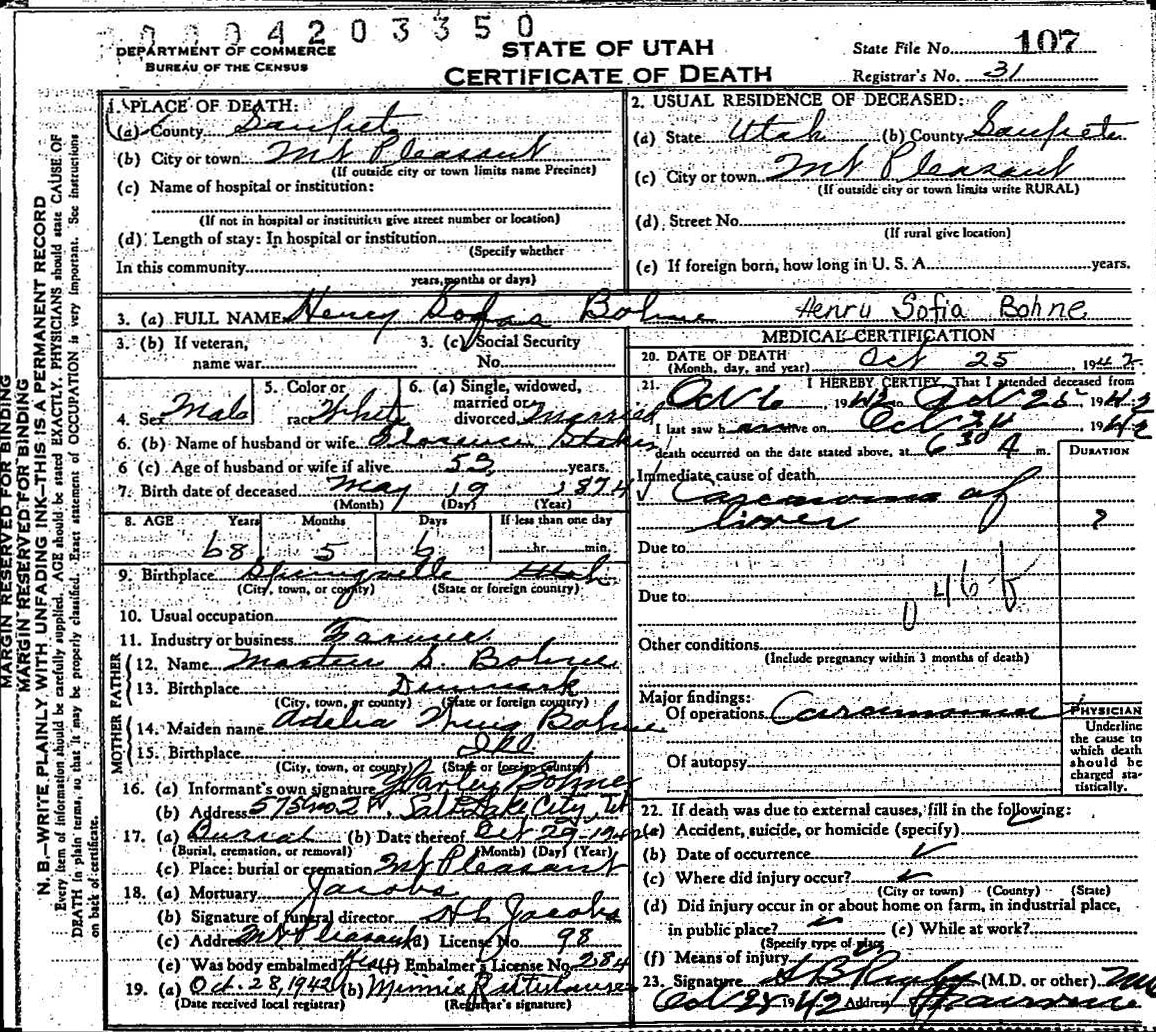 0004203350
DEPARTMENT OF COMMERCE
BUREAU OF THE CENSUS
STATE OF UTAH
CERTIFICATE OF DEATH
State File No. 107
Registrar's No. 31
MARGIN RESERVED FOR BINDING
MARGIN RESERVED FOR BINDING
N. B.—WRITE PLAINLY WITH UNFADING INK—THIS IS A PERMANENT RECORD
Every item of information should be carefully supplied. AGE should be stated EXACTLY. PHYSICIANS should state CAUSE OF
DEATH in plain terms, so that it may be properly classified. Exact statement of OCCUPATION is very important. See instructions
on back of certificate.
1. PLACE OF DEATH:
(a) County Sanpete
(b) City or town Mt Pleasant
(If outside city or town limits name Precinct)
(c) Name of hospital or institution:
(If not in hospital or institution give street number or location)
(d) Length of stay: In hospital or institution
(Specify whether
In this community
years, months or days)
2. USUAL RESIDENCE OF DECEASED:
(a) State Utah (b) County Sanpete
(c) City or town Mt Pleasant
(If outside city or town limits write RURAL)
(d) Street No.
(If rural give location)
(e) If foreign born, how long in U. S. A. years.
3. (a) FULL NAME Henry Sofas Bohne Henru Sofia Bohne
3. (b) If veteran,
name war
3. (c) Social Security
No.
4. Sex Male
5. Color or
race White
6. (a) Single, widowed,
married or
divorced Married
6. (b) Name of husband or wife Florence
6 (c) Age of husband or wife if alive 53 years.
7. Birth date of deceased May 19 1874
(Month) (Day) (Year)
8. AGE Years Months Days If less than one day
68 5 6 hr. min.
9. Birthplace Springville Utah
(City, town, or county) (State or foreign country)
10. Usual occupation
11. Industry or business Farmer
FATHER
12. Name S. Bohne
13. Birthplace Denmark
(City, town, or county) (State or foreign country)
MOTHER
14. Maiden name Adelia Bohne
15. Birthplace Ill
(City, town, or county) (State or foreign country)
16. (a) Informant's own signature Harley Bohne
(b) Address 575 No 2 W, Salt Lake City, Ut
17. (a) Burial (b) Date thereof Oct 29-1942
(Burial, cremation, or removal) (Month) (Day) (Year)
(c) Place: burial or cremation Mt Pleasant
18. (a) Mortuary Jacobs
(b) Signature of funeral director H L Jacobs
(c) Address Mt Pleasant (d) License No. 98
(e) Was body embalmed? Yes (f) Embalmer's License No. 284
19. (a) Oct. 28, 1942 (b) Minnie
(Date received local registrar) (Registrar's signature)
MEDICAL CERTIFICATION
20. DATE OF DEATH
(Month, day, and year) Oct 25 1942
21. I HEREBY CERTIFY, That I attended deceased from
Oct 6, 1942 to Oct 25 1942
I last saw him alive on Oct 24 1942
death occurred on the date stated above, at 6 30 A m.
DURATION
Immediate cause of death
Carcinoma of
liver ?
Due to
Due to
046f
Other conditions
(Include pregnancy within 3 months of death)
Major findings:
Of operations Carcinoma
Of autopsy
PHYSICIAN
Underline
the cause to
which death
should be
charged sta-
tistically.
22. If death was due to external causes, fill in the following:
(a) Accident, suicide, or homicide (specify)
(b) Date of occurrence
(c) Where did injury occur?
(City or town) (County) (State)
(d) Did injury occur in or about home on farm, in industrial place,
in public place? (e) While at work?
(Specify type of place
(f) Means of injury
23. Signature S B Rigby (M.D. or other) MD
Oct 28 1942 Address Fairview